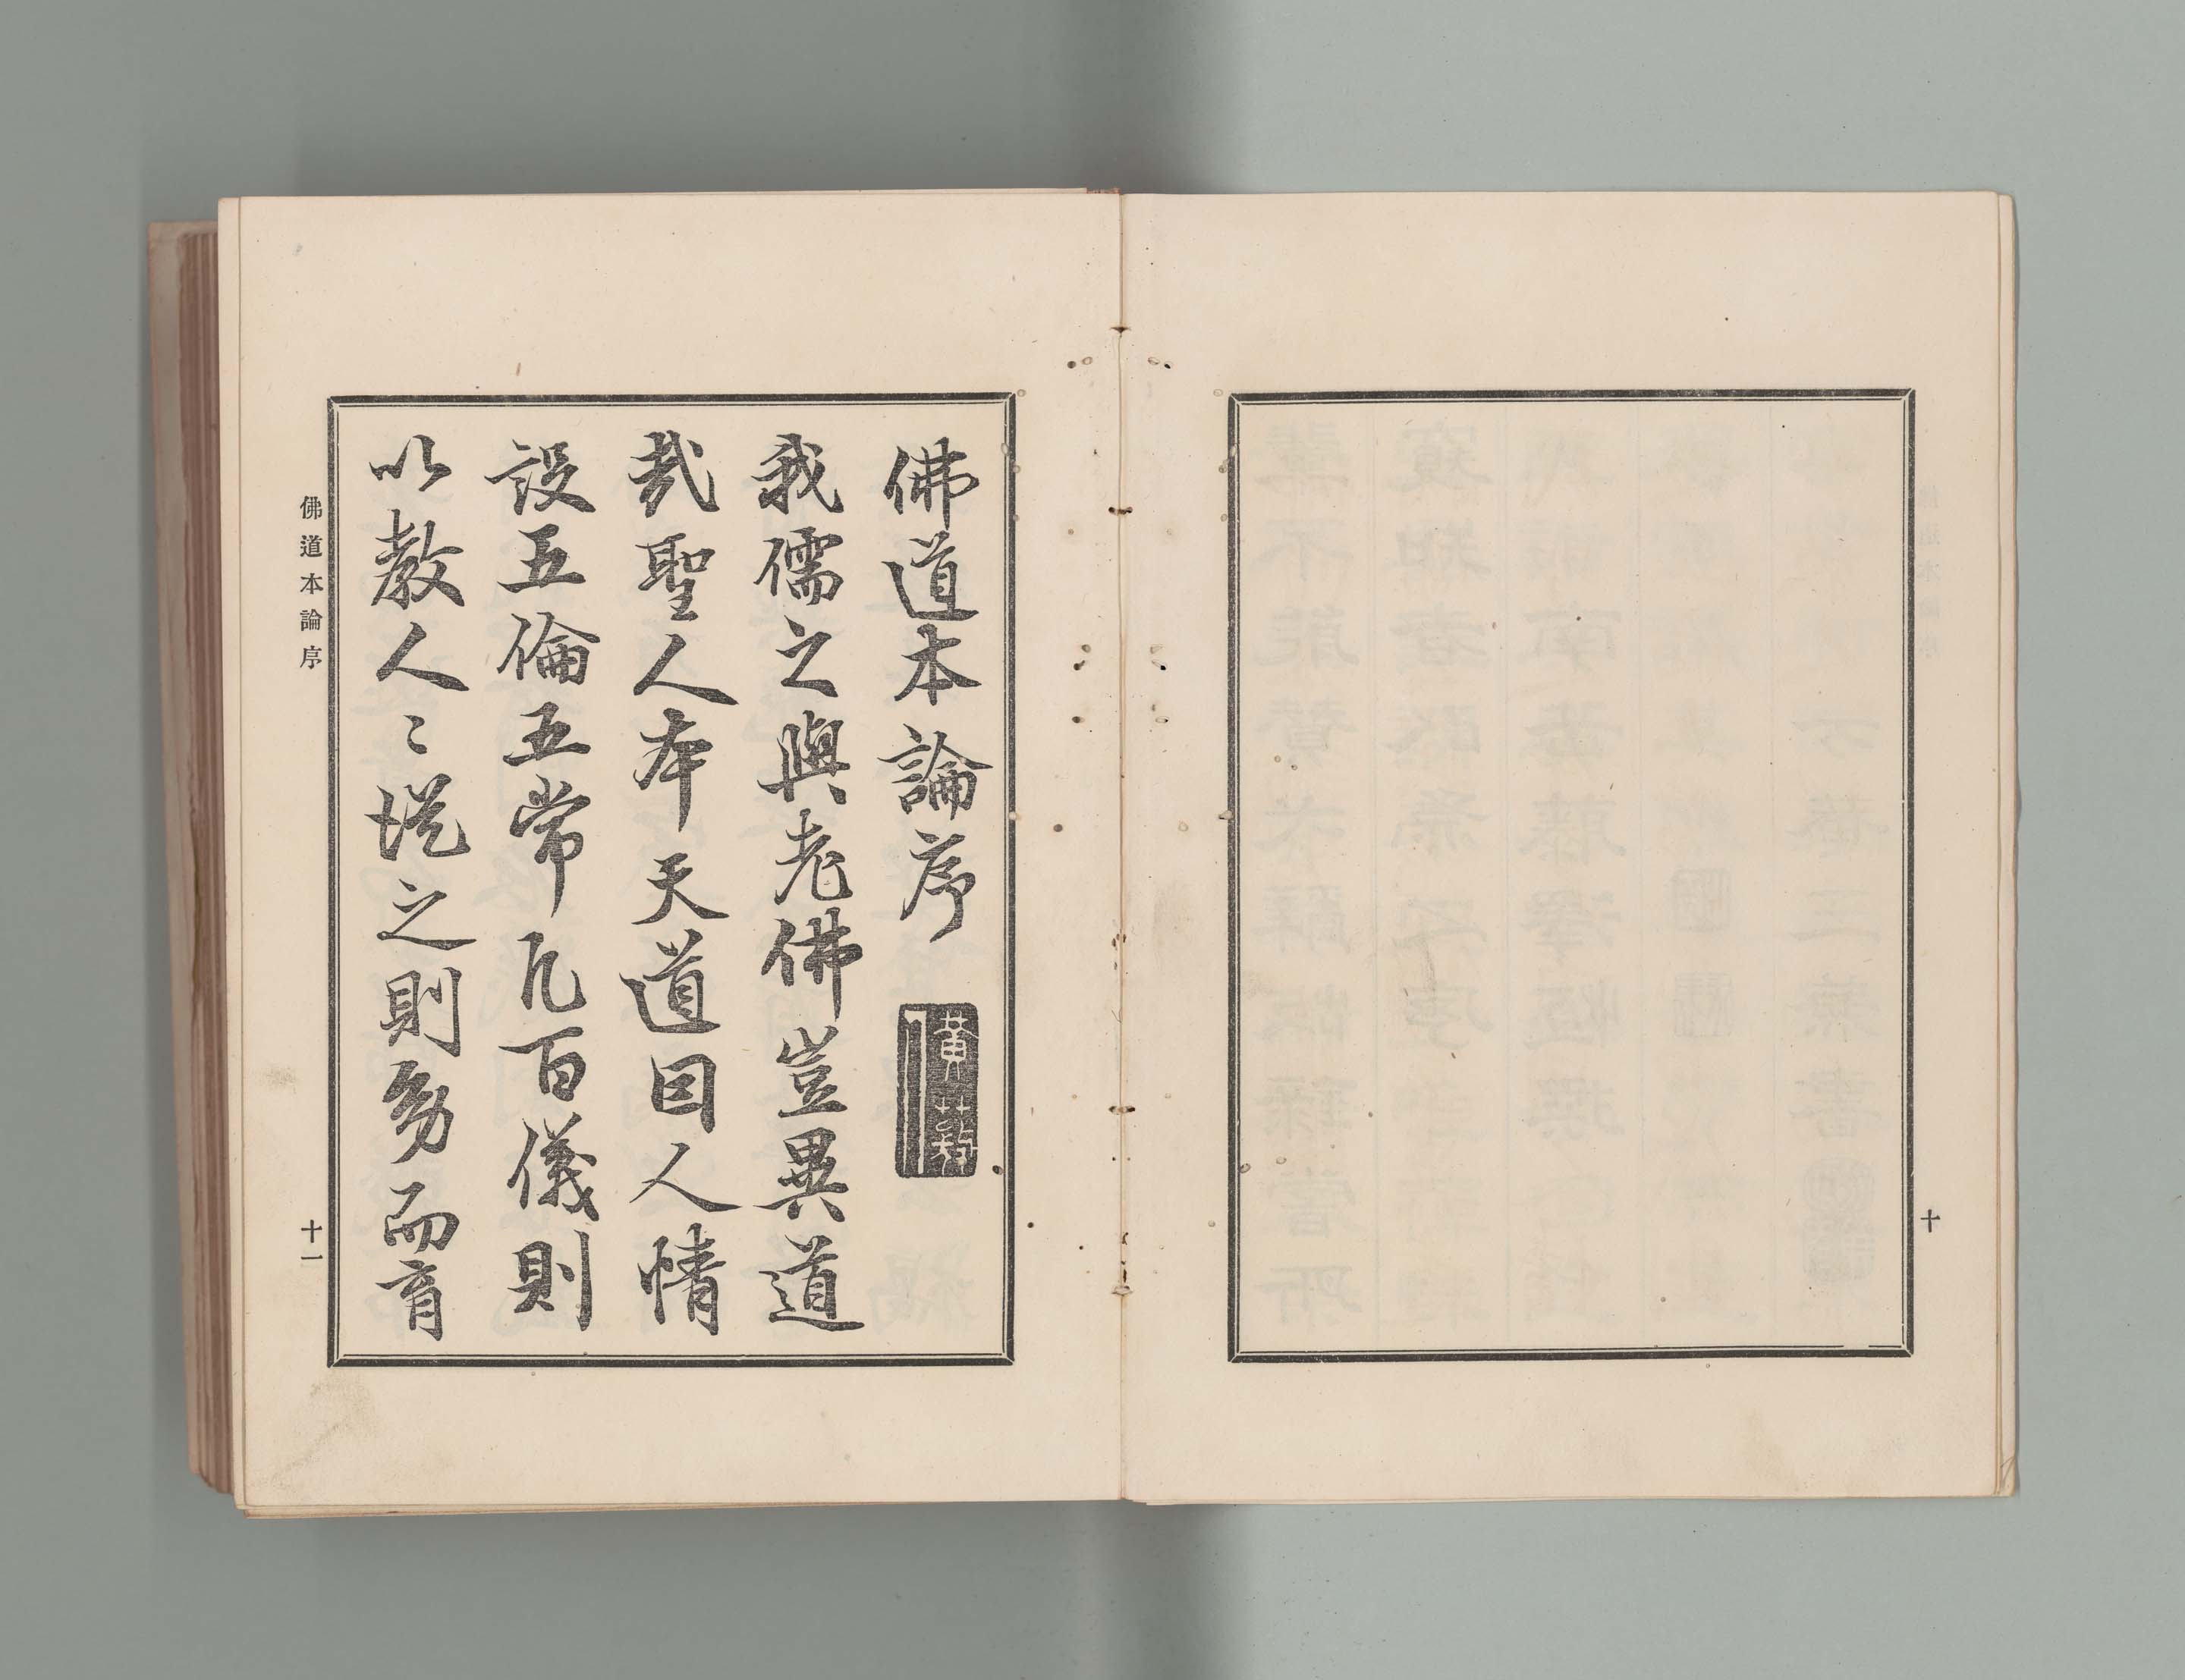 十
佛道本論序
我儒之與老佛豈異道
哉聖人本天道因人情
設五倫五常凡百儀則
以教人〻从之則
而育
佛道本論序
十一